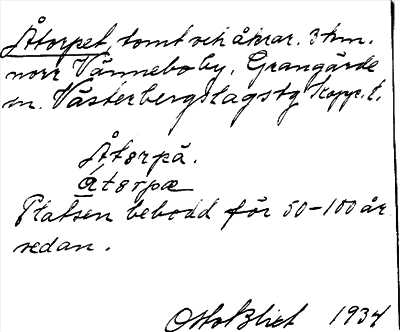 Åtorpet, tomt och åkrar. 3 km.
norr Vänneboby. Grangärde
sn. Västerbergslagstg Kopp. l.
Åtorpä.
Platsen bebodd för 50-100 år
sedan.
1934